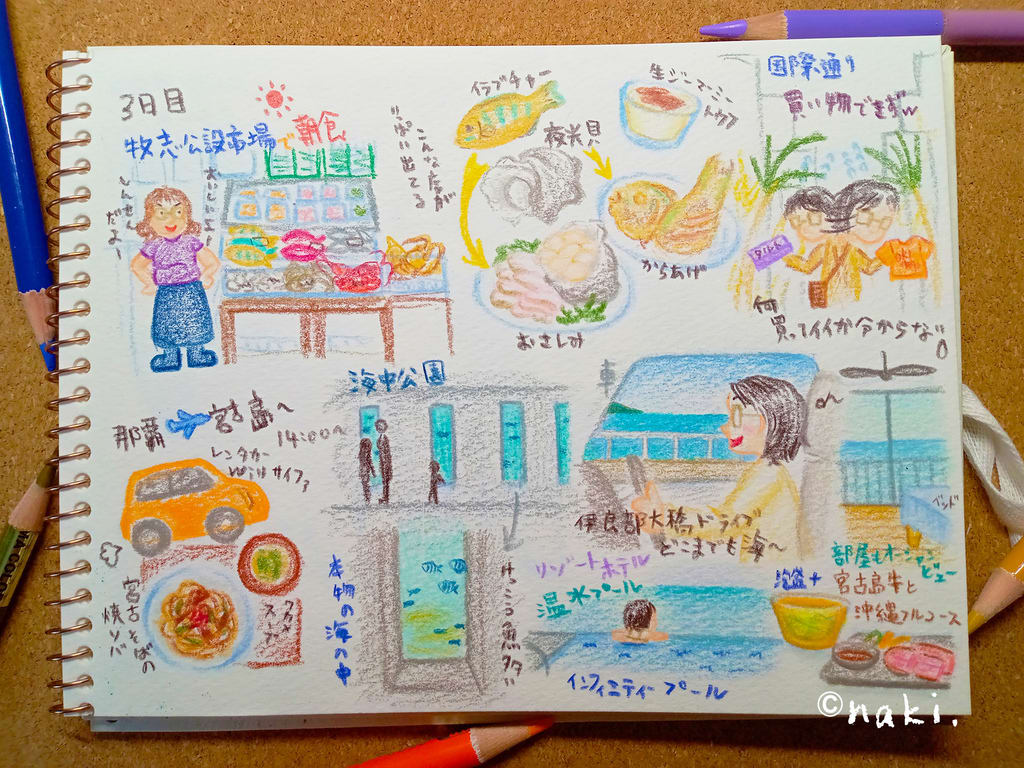 3日目
牧志公設市場で朝食
しんせん
だよー
こんな店が
いっぱい出てる
イラブチャー
夜光貝
おさしみ
からあげ
生ジーマーミー
トウフ
国際通り
買い物できずw
何
買ってイイか分からない
那覇
宮古島へ
14:00〜
レンタカー
宮古そばの
焼ソバ
スープ
海中公園
本物の海の中
けっこう魚タタ"
車
伊良部大橋ドライブ
どこまでも海〜
リゾートホテル
温水プール
インフィニティープール
ベッド
部屋もオーシャン
ビュー
宮古島牛と
沖縄フルコース
©naki.